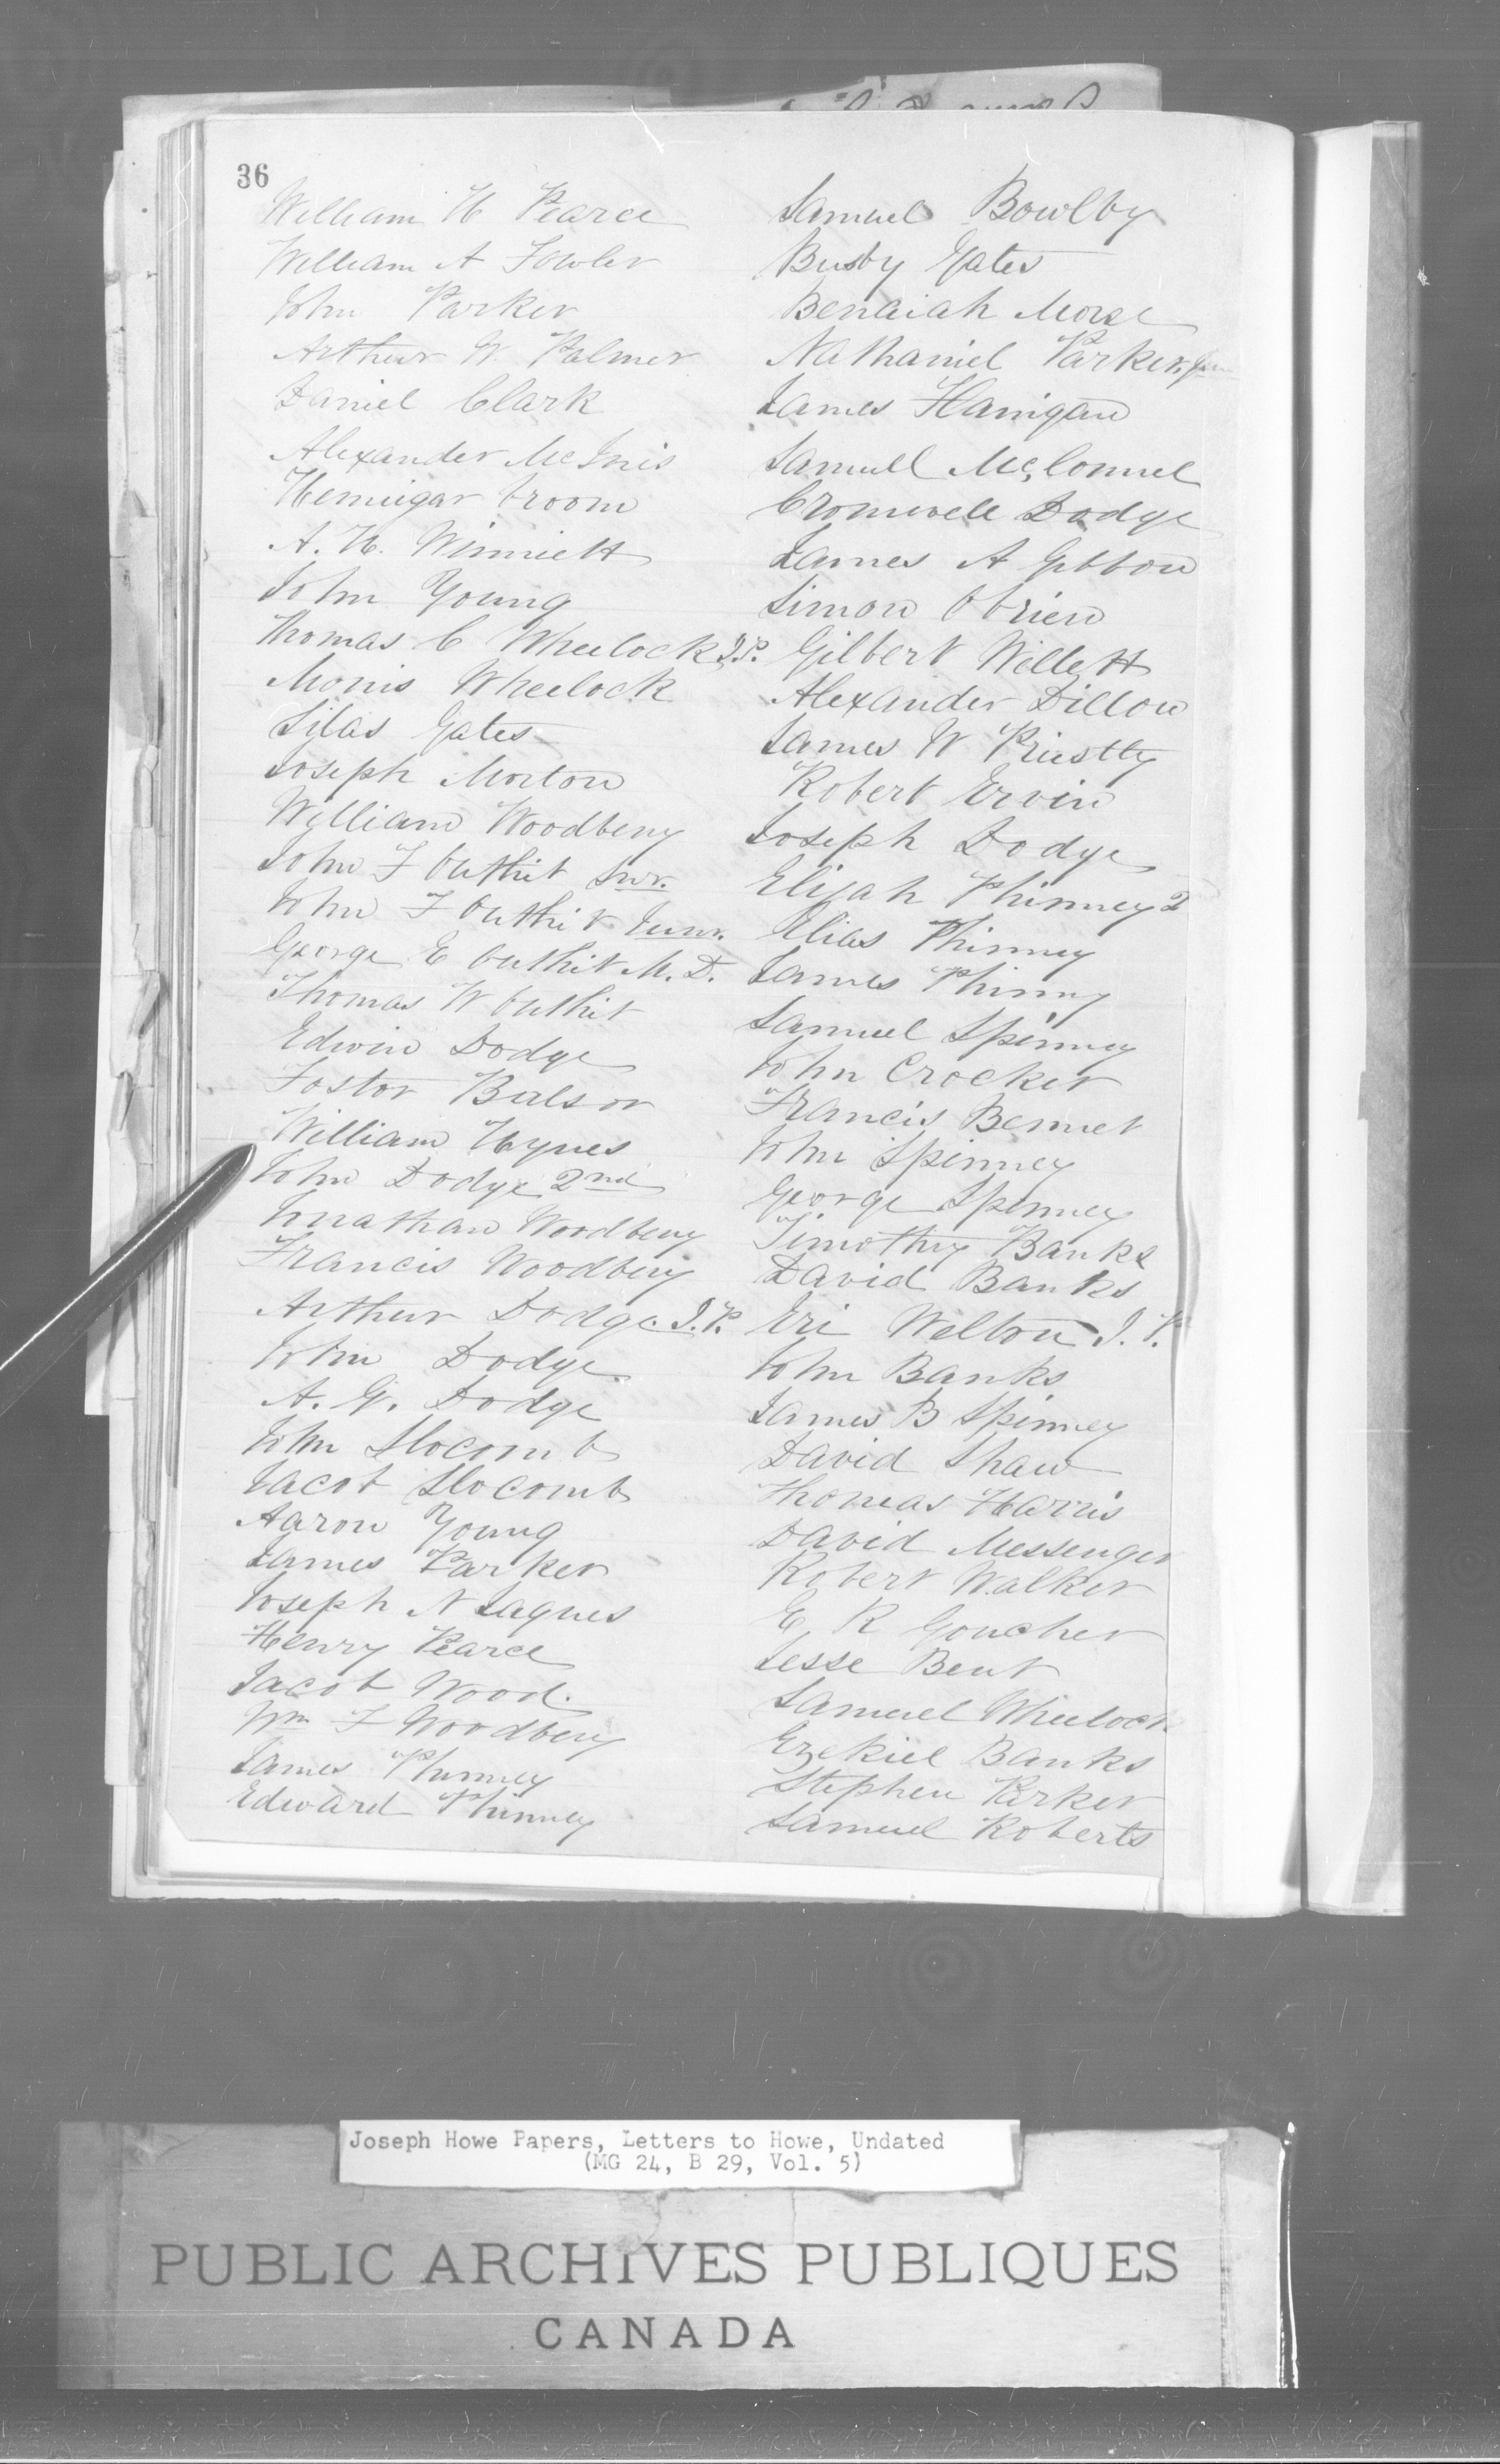 36
William H Pearce
William A Fowler
John Parker
Arthur W. Palmer
Daniel Clark
Alexander McInis
Henniigar Croom
A. H. Winniett
John Young
Thomas C Wheelock J.P.
Morris Wheelock
Silas Gates
Joseph Morton
William Woodbery
John F Outhit Snr.
John F Outhit Junr.
George E Outhit M. D.
Thomas W Outhit
Edwin Dodge
Foster Balsor
William Hynes
John Dodge 2nd
Jonathan Woodbery
Francis Woodbery
Arthur Dodge J.P.
John Dodge
A. G. Dodge
John Slocomb
Jacob Slocomb
Aaron Young
James Parker
Joseph N Jaques
Henry Pearce
Jacob Wood.
Wm F Woodbery
James Phinney
Edward Phinney
Samuel Bowlby
Busby Gates
Benaiah Morse
Nathaniel Parker, Jun
James Hanigan
Samuell McConnel
Cromwell Dodge
James A Gibbon
Simon Obrien
Gilbert Willett
Alexander Dillon
James W Priestly
Robert Ervin
Joseph Dodge
Elijah Phinney 2
Elias Phinney
James Phinny
Samuel Spinney
John Crocker
Francis Bennet
John Spinney
George Spinney
Timothy Banks
David Banks
Eri Welton J. P.
John Banks
James B Spinney
David Shaw
Thomas Harris
David Messenger
Robert Walker
E R Goucher
Jesse Bent
Samuel Wheelock
Ezekiel Banks
Stephen Parker
Samuel Roberts
Joseph Howe Papers, Letters to Howe, Undated
(MG 24, B 29, Vol. 5)
PUBLIC ARCHIVES PUBLIQUES
CANADA